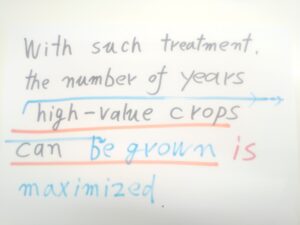 With such treatment,
the number of years
high-value crops
can be grown is
maximized